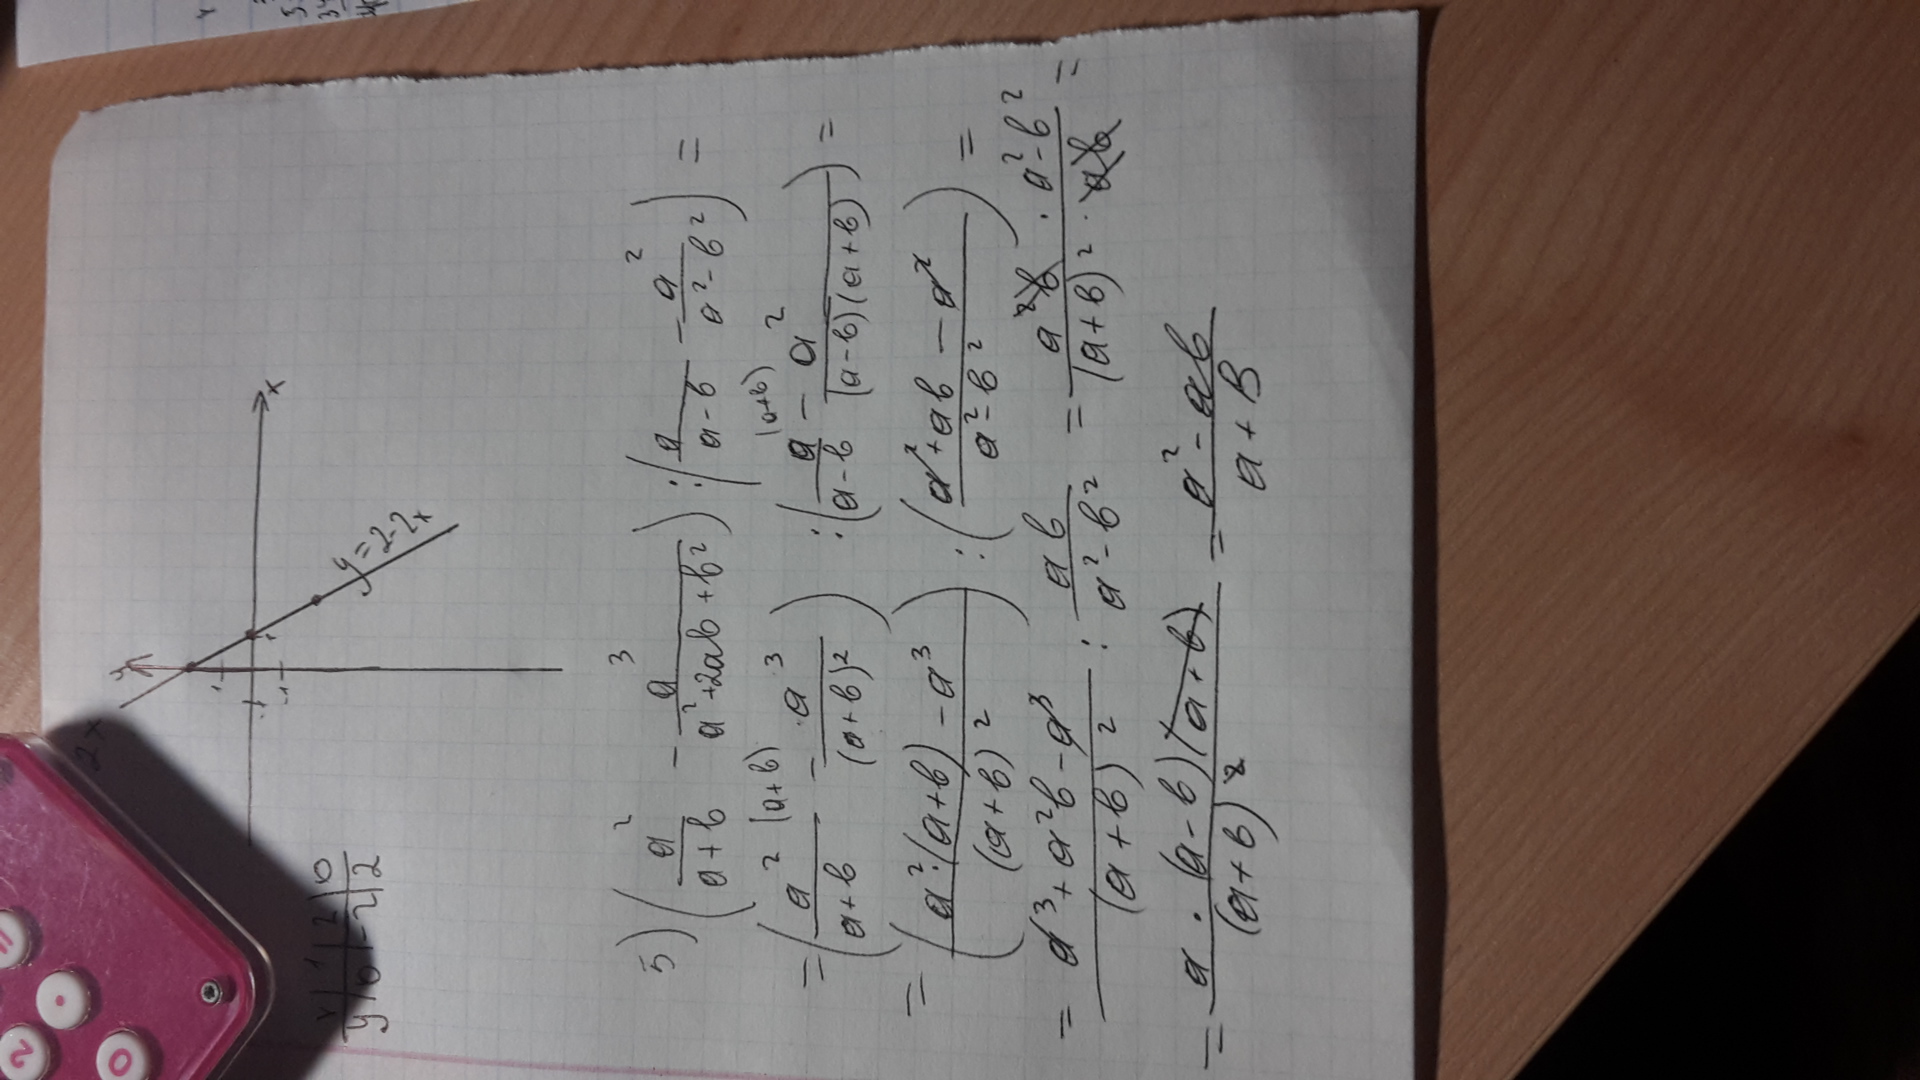 y
x
y=2-2x
x | 1 | 2 | 0
y | 0 | -2 | 2
5) (a²/(a+b) - a³/(a²+2ab+b²)) : (a/(a-b) - a²/(a²-b²)) =
= (a² (a+b)/(a+b) - a³/(a+b)²) : (a (a+b)/(a-b) - a²/((a-b)(a+b))) =
= ((a²·(a+b) - a³)/(a+b)²) : ((a²+ab-a²)/(a²-b²)) =
= (a³+a²b-a³)/(a+b)² : ab/(a²-b²) = (a²b · a²-b²)/((a+b)² · ab) =
= (a·(a-b)(a+b))/(a+b)² = (a²-ab)/(a+b)